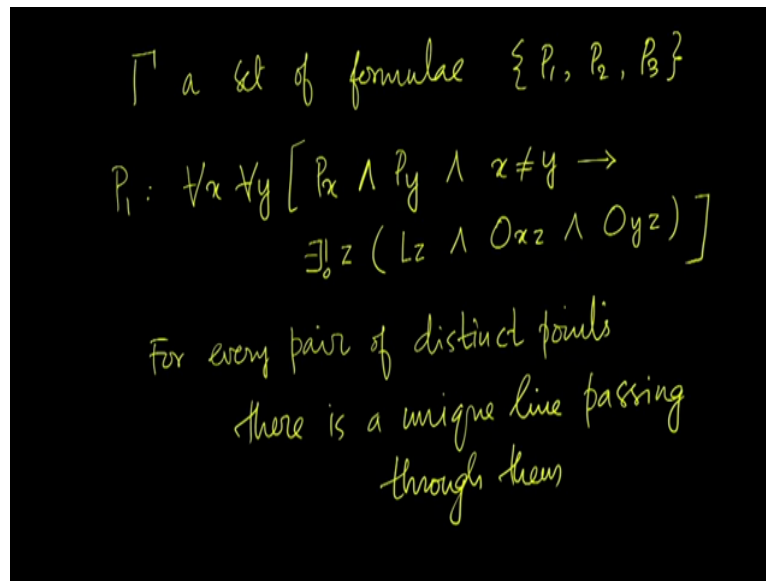 Γ a set of formulae {P₁, P₂, P₃}
P₁: ∀x ∀y [Px ∧ Py ∧ x≠y →
∃! z (Lz ∧ Oxz ∧ Oyz)]
For every pair of distinct points
there is a unique line passing
through them